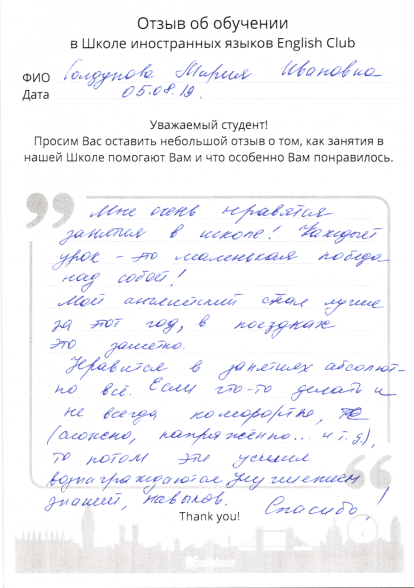 Отзыв об обучении
в Школе иностранных языков English Club
ФИО Солдунова Мария Ивановна
Дата 05.08.19.
Уважаемый студент!
Просим Вас оставить небольшой отзыв о том, как занятия в
нашей Школе помогают Вам и что особенно Вам понравилось.
Мне очень нравятся
занятия в школе! Каждый
урок - это маленькая победа
над собой!
Мой английский стал лучше
за этот год, в поездках
это заметно.
Нравится в занятиях абсолют-
но всё. Если что-то делать и
не всегда комфортно,
(сложно, напряжённо... и т.д.),
то потом эти усилия
вознаграждаются улучшением
знаний, навыков. Спасибо!
Thank you!